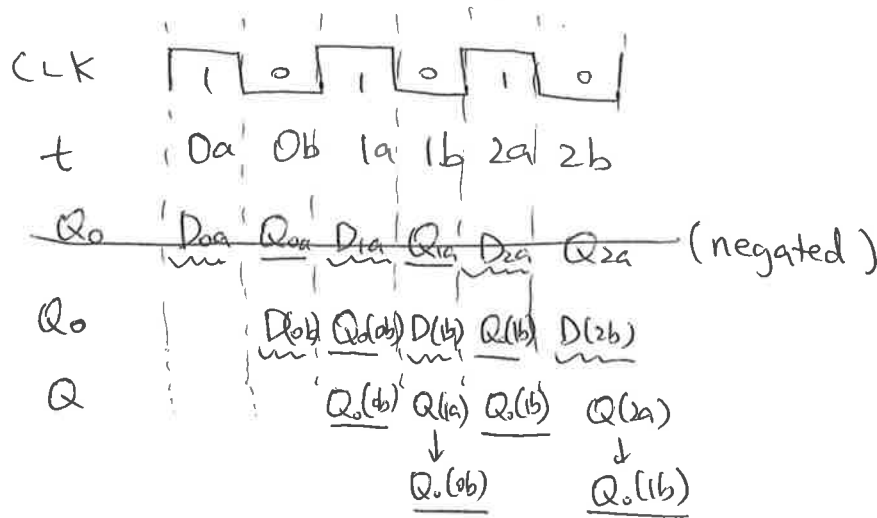 CLK 1 0 1 0 1 0
t 0a 0b 1a 1b 2a 2b
Q0 D0a Q0a D1a Q1a D2a Q2a (negated)
Q0 D(0b) Q0(0b) D(1b) Q(1b) D(2b)
Q Q0(0b) Q(1a) Q0(1b) Q(2a)
↓ ↓
Q0(0b) Q0(1b)